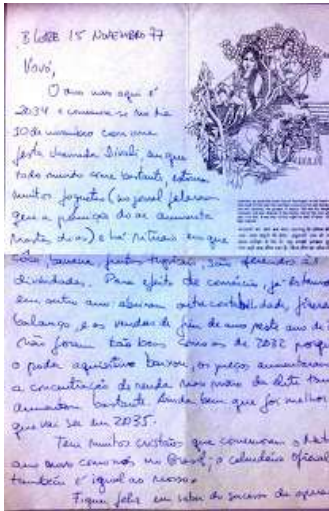 BLORE 15 NOVEMBRO 77
Vovó,
O ano novo aqui é
2034 e comemora-se no dia
10 de novembro com uma
festa chamada Divali, em que
todo mundo come bastante, estoura
muitos foguetes (no jornal falaram
que a poluição do ar aumenta
nestes dias) e há rituais em que
côco, banana, frutas tropicais, são oferecidos às
divindades. Para efeito de comércio, já estamos
em outro ano, abriram outra contabilidade, fizeram
balanço, e as vendas de fim de ano neste ano de
não foram tão boas como as de 2032 porque
o poder aquisitivo baixou, os preços aumentaram
a concentração de renda nas mãos da elite
aumentou bastante. Ainda bem que foi melhor
que vai ser em 2035.
Tem muitos cristãos que comemoram o Natal
ano novo como nós no Brasil; o calendário oficial
também é igual ao nosso.
Fiquei feliz em saber do sucesso da